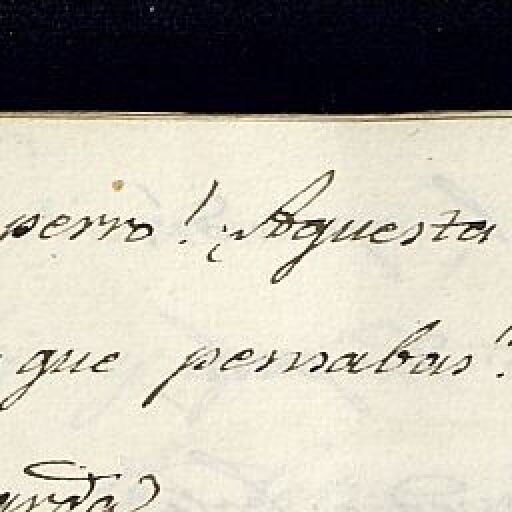 perro! ¿Aquesta
que pensabas?
arda